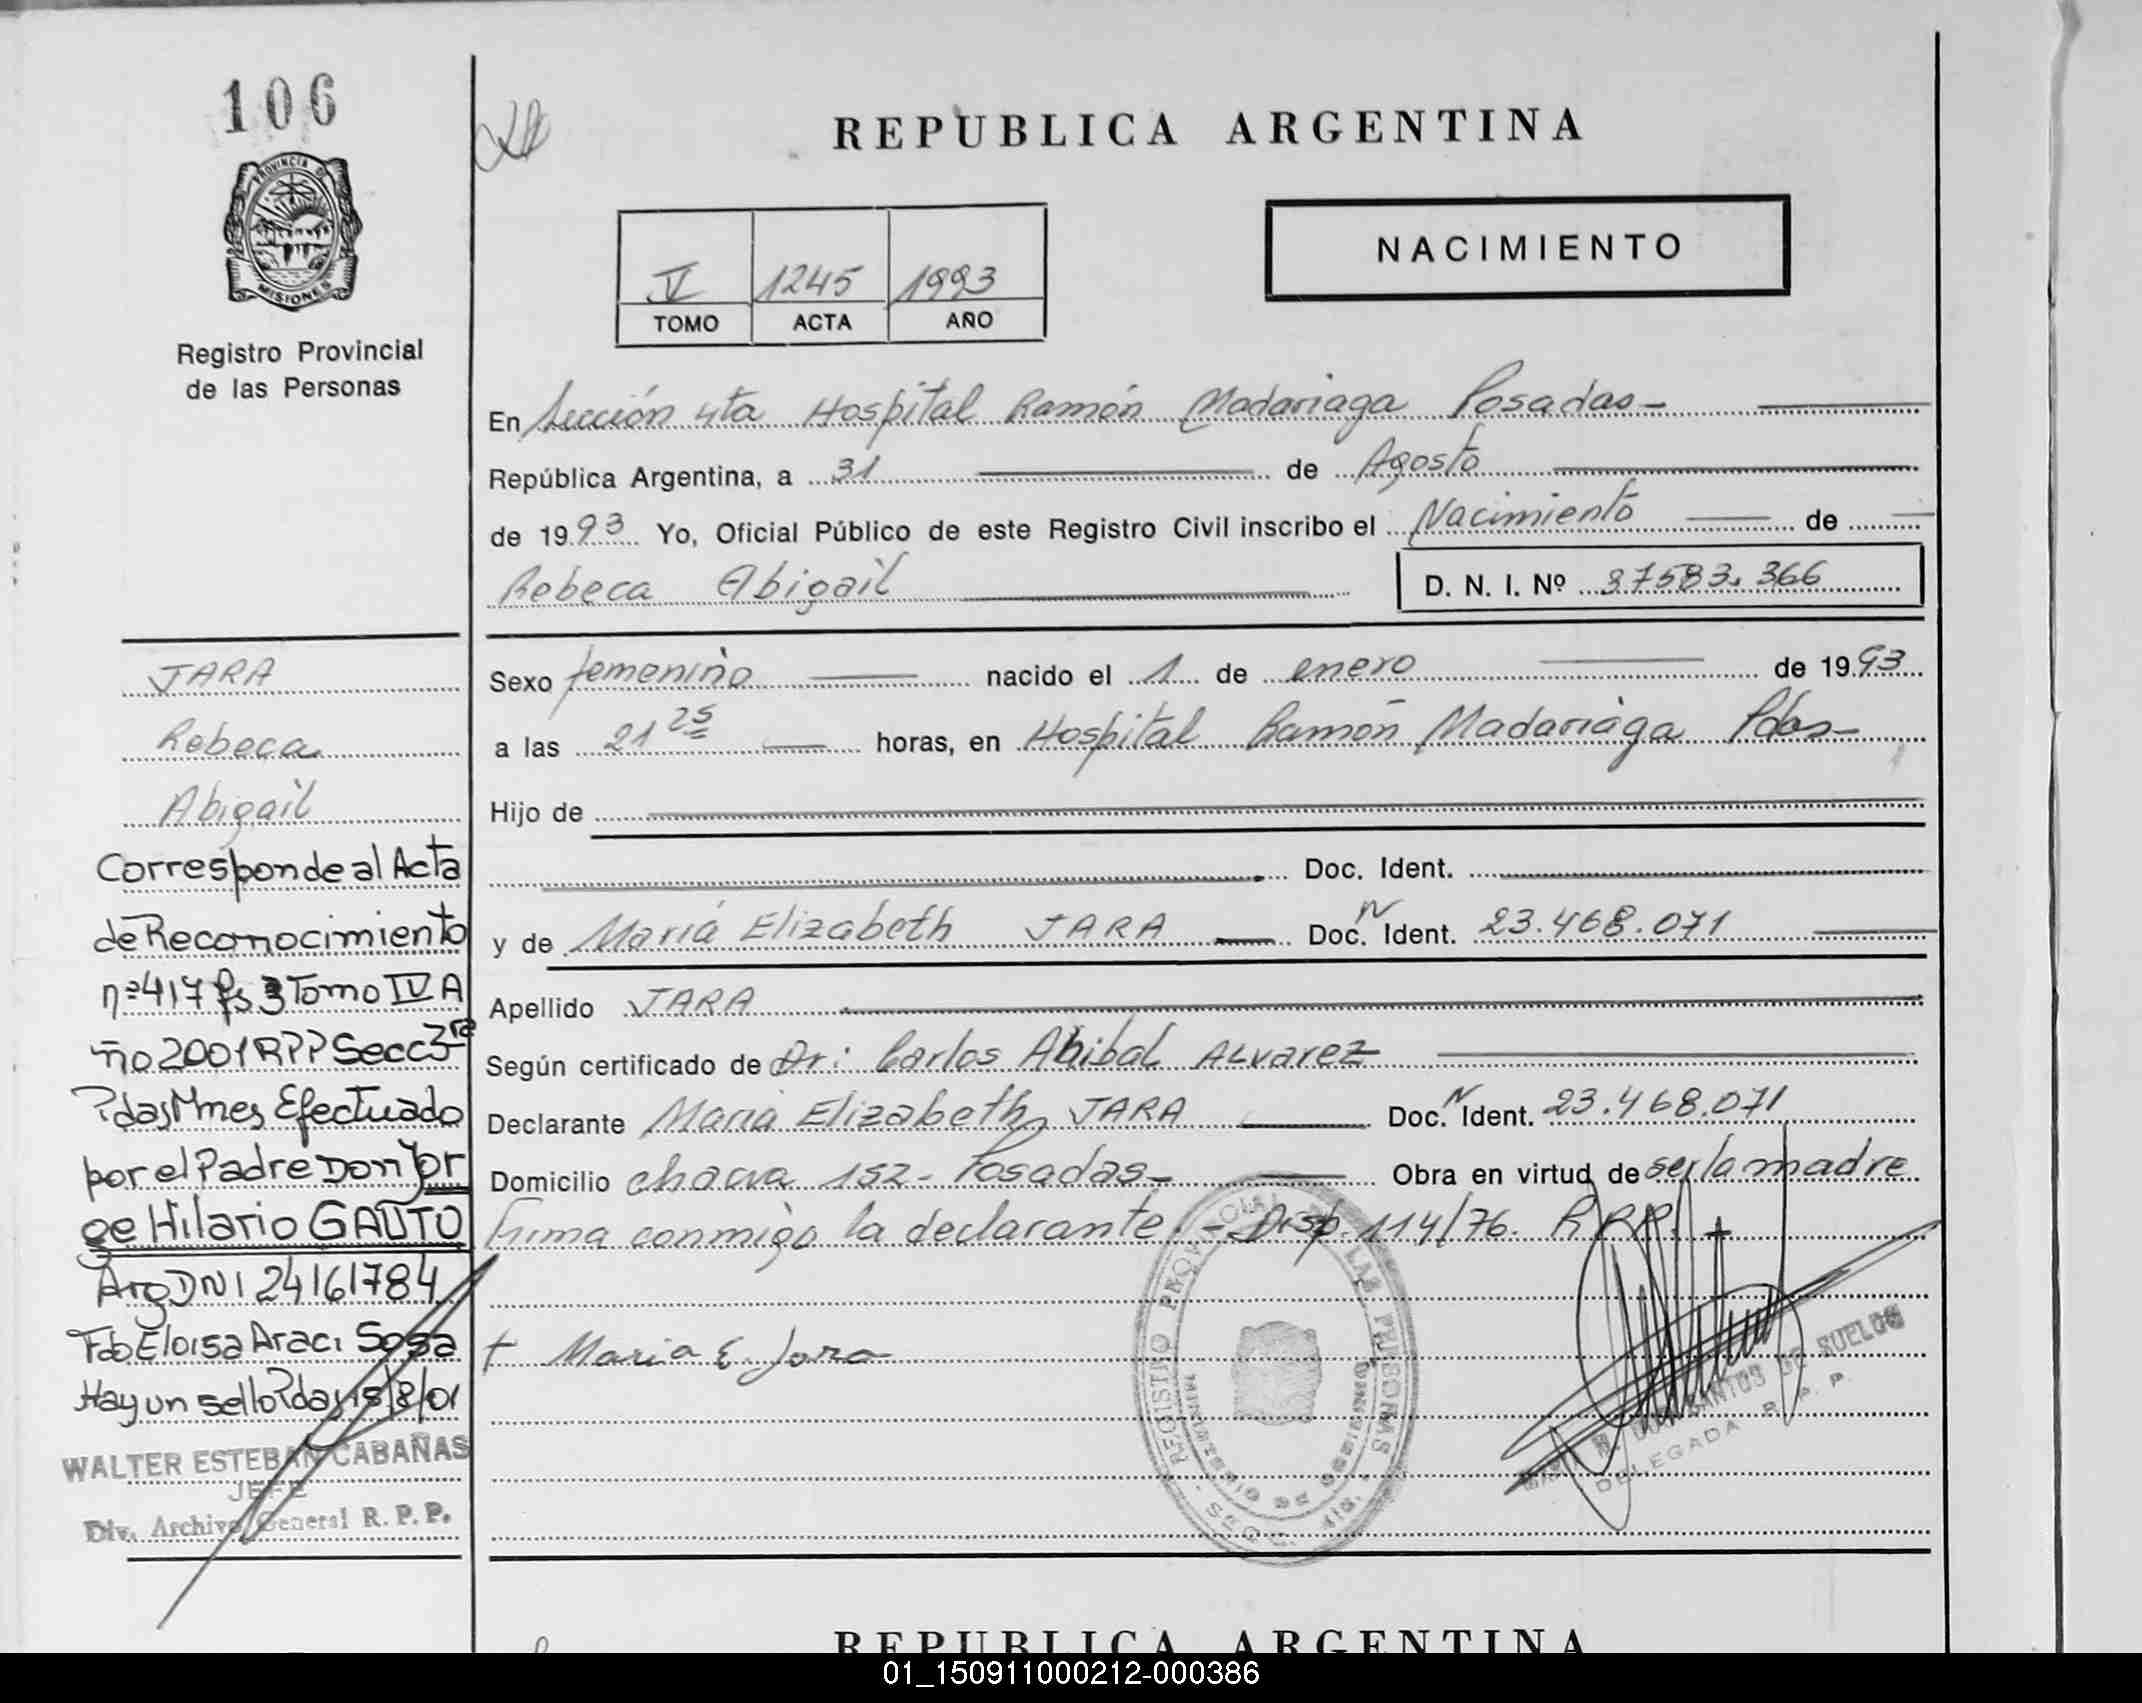 106
REPUBLICA ARGENTINA
PROVINCIA DE
MISIONES
NACIMIENTO
V 1245 1993
TOMO ACTA AÑO
Registro Provincial
de las Personas
En Sección 4ta Hospital Ramón Madariaga Posadas-
República Argentina, a 31 de Agosto
de 1993 Yo, Oficial Público de este Registro Civil inscribo el Nacimiento de
Rebeca Abigail D. N. I. Nº 37583.366
Sexo femenino nacido el 1 de enero de 1993
a las 21 25 horas, en Hospital Ramón Madariaga Pdas-
Hijo de
Doc. Ident.
y de María Elizabeth JARA Doc. N Ident. 23.468.071
Apellido JARA
Según certificado de Dr: Carlos Anibal ALvarez
Declarante María Elizabeth JARA Doc. N Ident. 23.468.071
Domicilio chacra 152- Posadas- Obra en virtud de ser la madre
Firma conmigo la declarante.- Disp. 114/76. R.P.P.
Maria E. Jara
JARA
Rebeca
Abigail
Corresponde al Acta
de Reconocimiento
nº 417 fs 3 Tomo IV A
ño 2001 RPP Secc 3ra
Pdas Mnes Efectuado
por el Padre Don Jor
ge Hilario GAUTO
Arg DNI 24161784
Fdo Eloisa Araci Sosa
Hay un sello Pdas 15/8/01
WALTER ESTEBAN CABAÑAS
JEFE
Div. Archivo General R. P. P.
REGISTRO PROVINCIAL DE LAS PERSONAS
SANTOS DE SUELOS
DELEGADA R. P. P.
REPUBLICA ARGENTINA
01_150911000212-000386